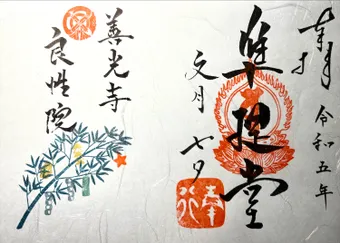 奉拝
令和五年
準提堂
文月 七夕
善光寺
良性院